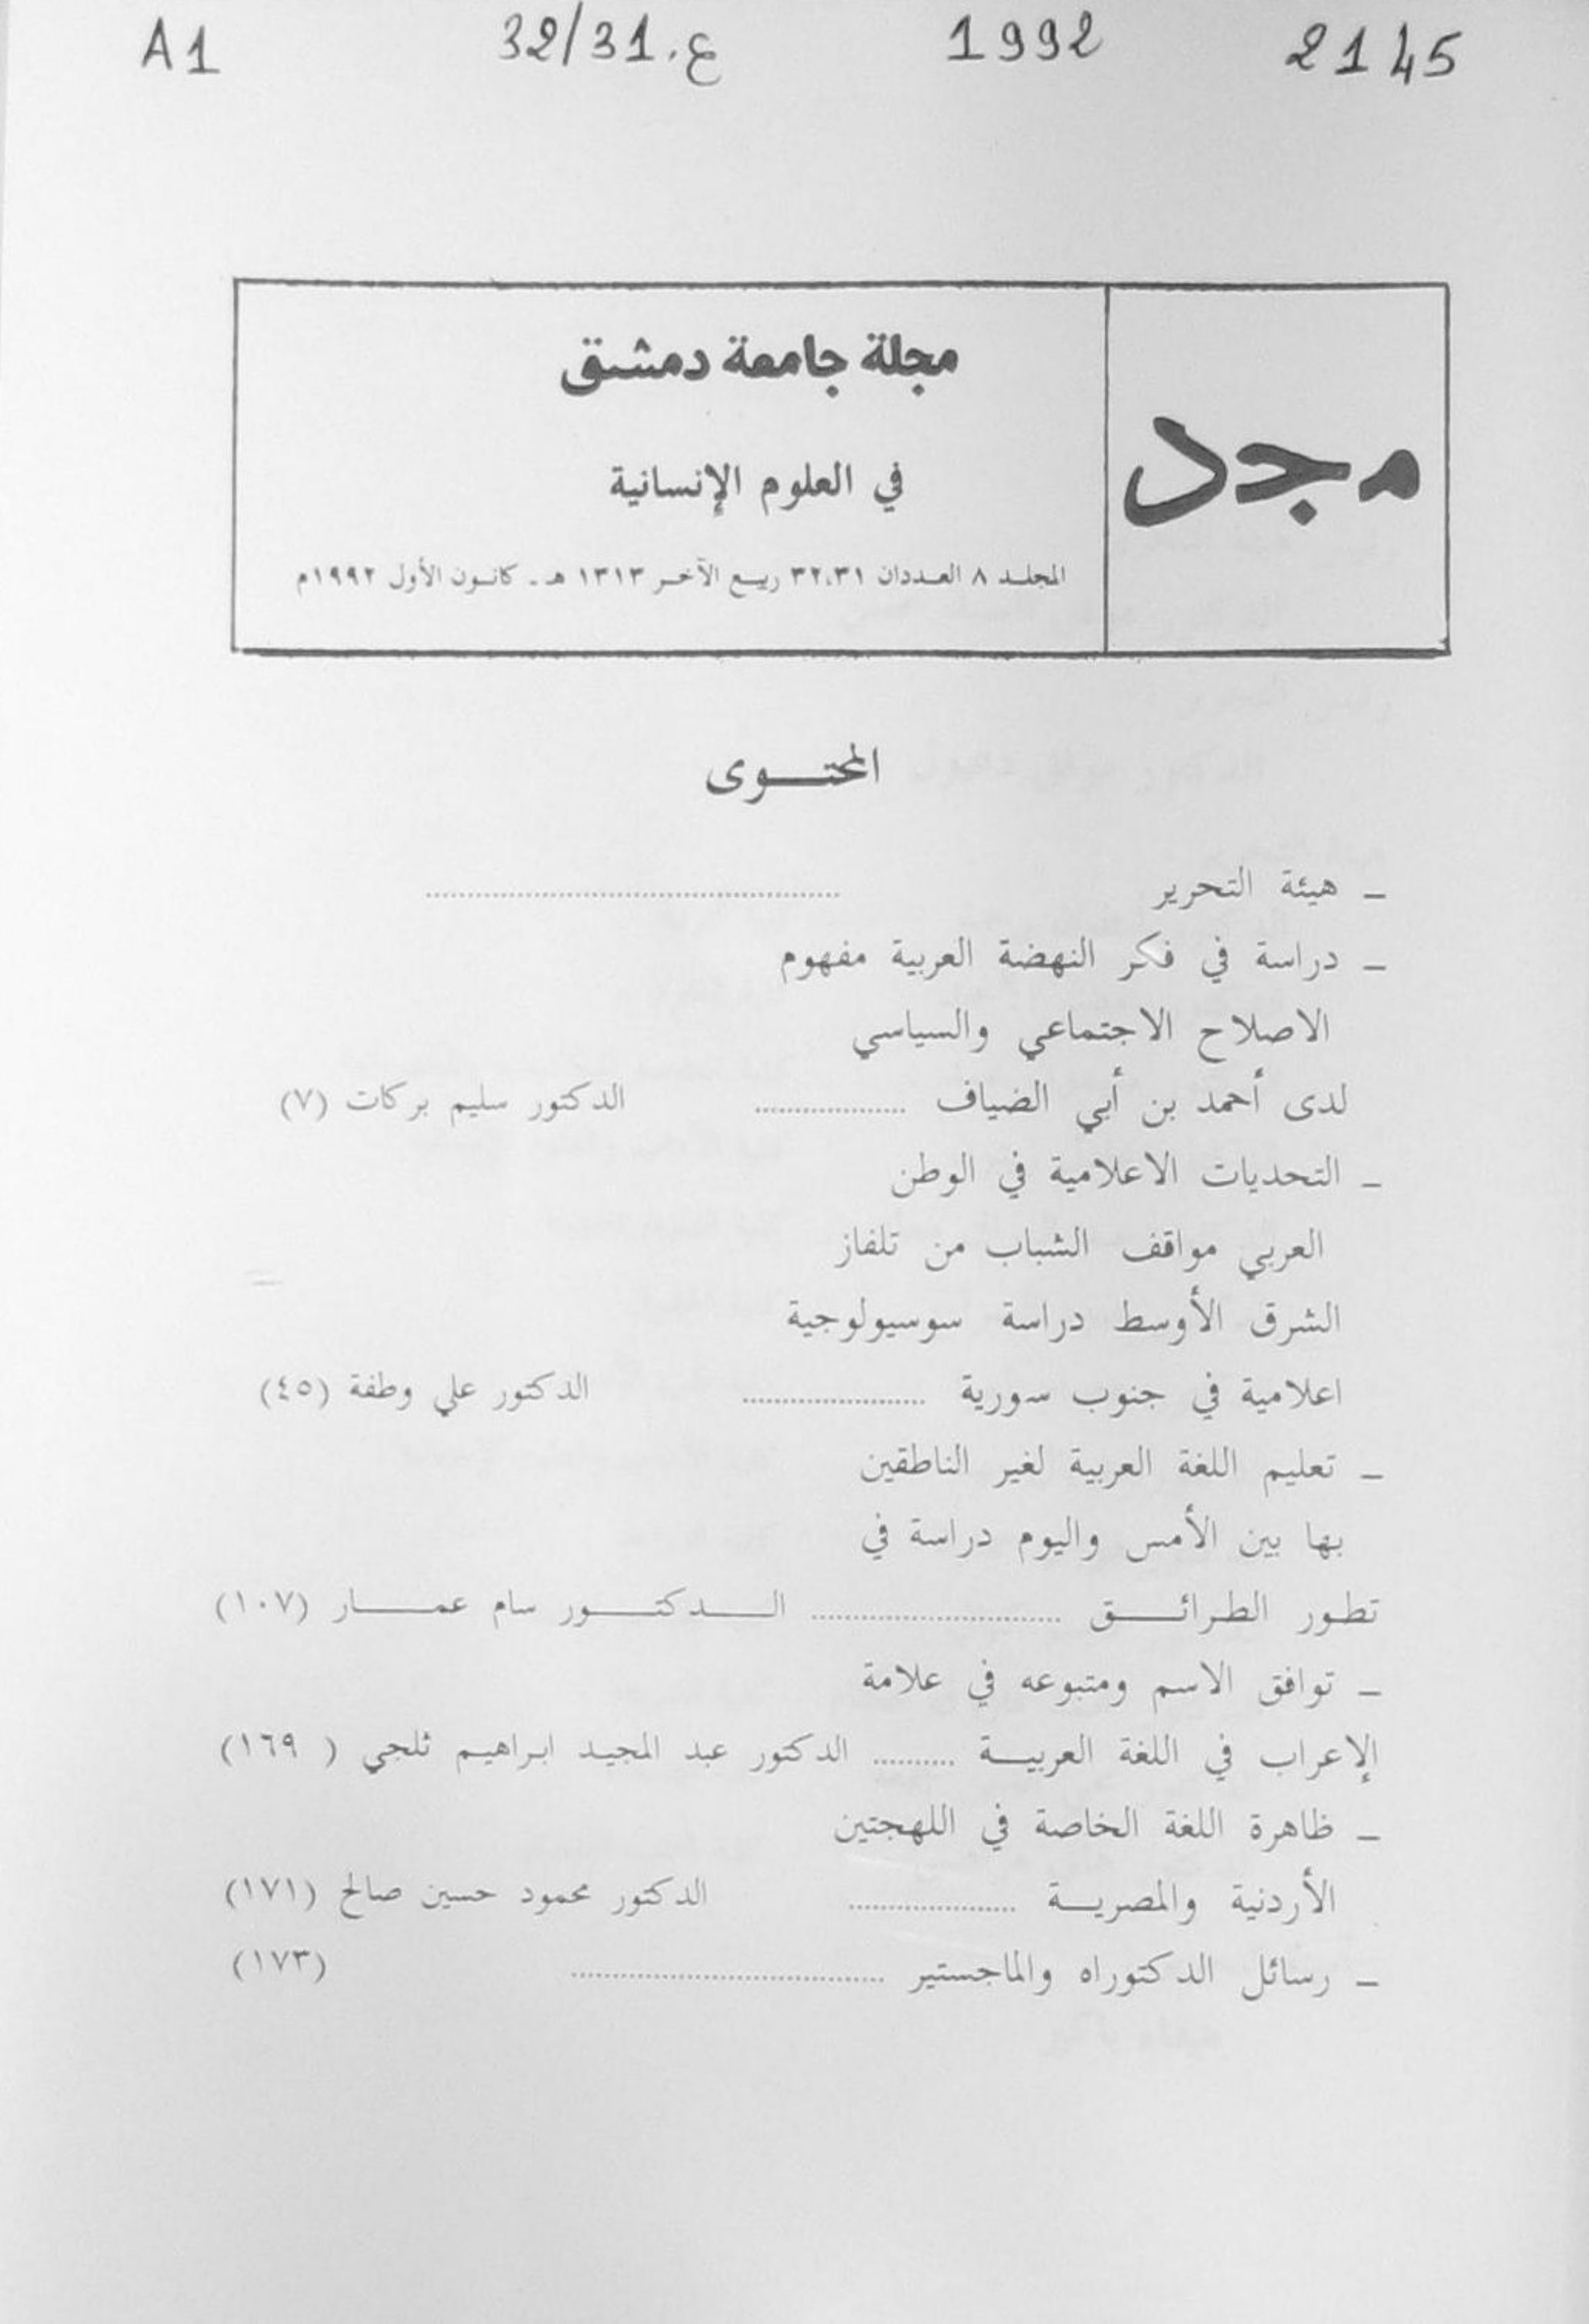 2145 1992 ع.32/31 A1
مجد
مجلة جامعة دمشق
في العلوم الإنسانية
المجلد ٨ العددان ٣٢،٣١ ربيع الآخر ١٣١٣ هـ ـ كانون الأول ١٩٩٢م
المحتوى
ـ هيئة التحرير ..........
ـ دراسة في فكر النهضة العربية مفهوم
الاصلاح الاجتماعي والسياسي
لدى أحمد بن أبي الضياف .......... الدكتور سليم بركات (٧)
ـ التحديات الاعلامية في الوطن
العربي مواقف الشباب من تلفاز
الشرق الأوسط دراسة سوسيولوجية
اعلامية في جنوب سورية .......... الدكتور علي وطفة (٤٥)
ـ تعليم اللغة العربية لغير الناطقين
بها بين الأمس واليوم دراسة في
تطور الطرائق .......... الدكتور سام عمار (١٠٧)
ـ توافق الاسم ومتبوعه في علامة
الإعراب في اللغة العربية .......... الدكتور عبد المجيد ابراهيم ثلجي ( ١٦٩)
ـ ظاهرة اللغة الخاصة في اللهجتين
الأردنية والمصرية .......... الدكتور محمود حسين صالح (١٧١)
ـ رسائل الدكتوراه والماجستير .......... (١٧٣)